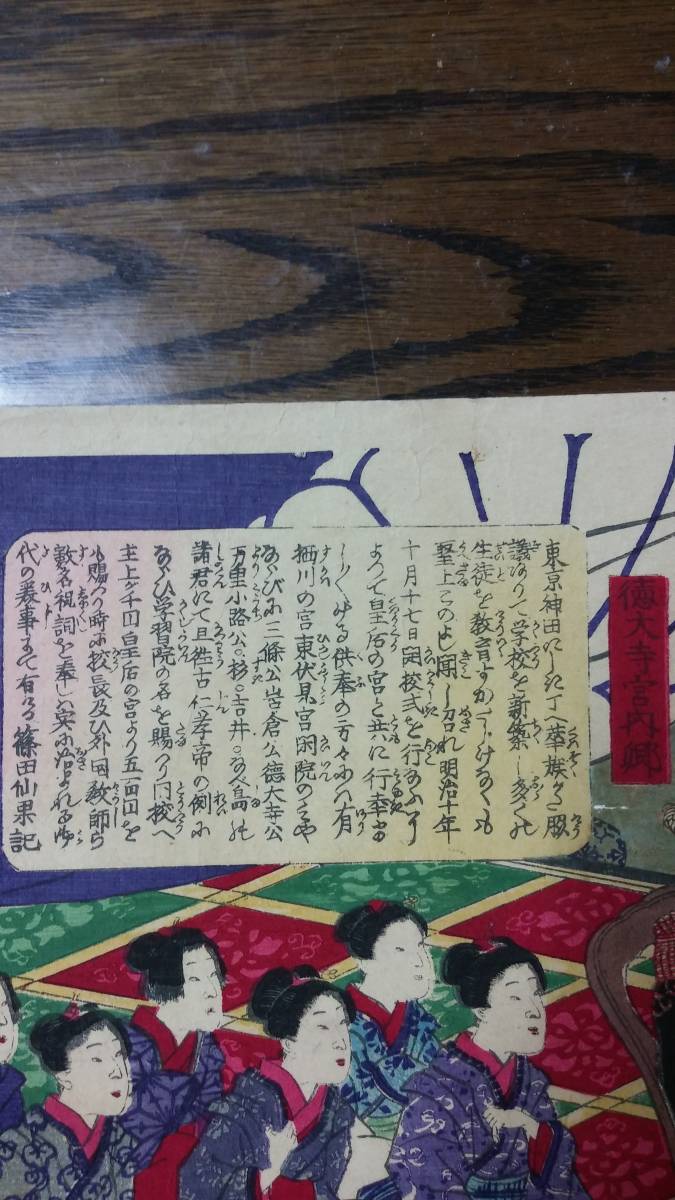 徳大寺宮内卿
東京神田にしき丁へ華族がた協
議ありて学校を新築し多くの
生徒を教育すかたじけなくも
聖上このよし聞し召れ明治十年
十月十七日開校式を行なふ
よつて皇后の宮と共に行幸
供奉の方々には有
栖川の宮東伏見宮閑院のみや
ならびに三條公岩倉公徳大寺公
万里小路公○杉○吉井○なべ島の
諸君にて且往古仁孝帝の例に
ならひ学習院の名を賜へり同校へ
主上より千円皇后の宮より五百円を
賜へり時に校長及び外国教師ら
数名祝詞を奉し実に治まれる御
代の美事にて有ける 篠田仙果記